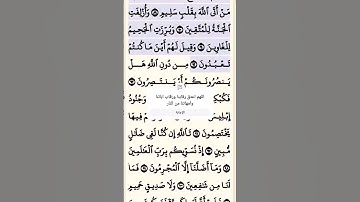 مَنْ أَتَى ٱللَّهَ بِقَلْبٍ سَلِيمٍ ۝ وَأُزْلِفَتِ
ٱلْجَنَّةُ لِلْمُتَّقِينَ ۝ وَبُرِّزَتِ ٱلْجَحِيمُ
لِلْغَاوِينَ ۝ وَقِيلَ لَهُمْ أَيْنَ مَا كُنتُمْ
تَعْبُدُونَ ۝ مِن دُونِ ٱللَّهِ هَلْ
يَنصُرُونَكُمْ أَوْ يَنتَصِرُونَ ۝
اللهم اعتق رقابنا ورقاب ابائنا
وامهاتنا من النار
وَجُنُودُ
إِبْلِيسَ فِيهَا
يَخْتَصِمُونَ ۝ تَٱللَّهِ إِن كُنَّا لَفِي ضَلَٰلٍ
مُّبِينٍ ۝ إِذْ نُسَوِّيكُم بِرَبِّ ٱلْعَٰلَمِينَ
۝ وَمَآ أَضَلَّنَآ إِلَّا ٱلْمُجْرِمُونَ ۝ فَمَا
لَنَا مِن شَٰفِعِينَ ۝ وَلَا صَدِيقٍ حَمِيمٍ